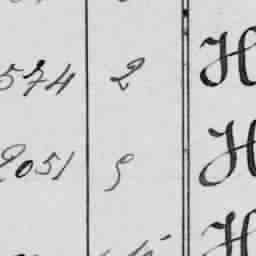 574 2 H
2051 9 H
H